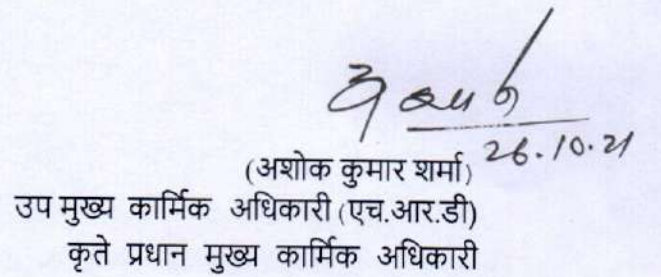 26.10.21
(अशोक कुमार शर्मा)
उप मुख्य कार्मिक अधिकारी (एच.आर.डी)
कृते प्रधान मुख्य कार्मिक अधिकारी